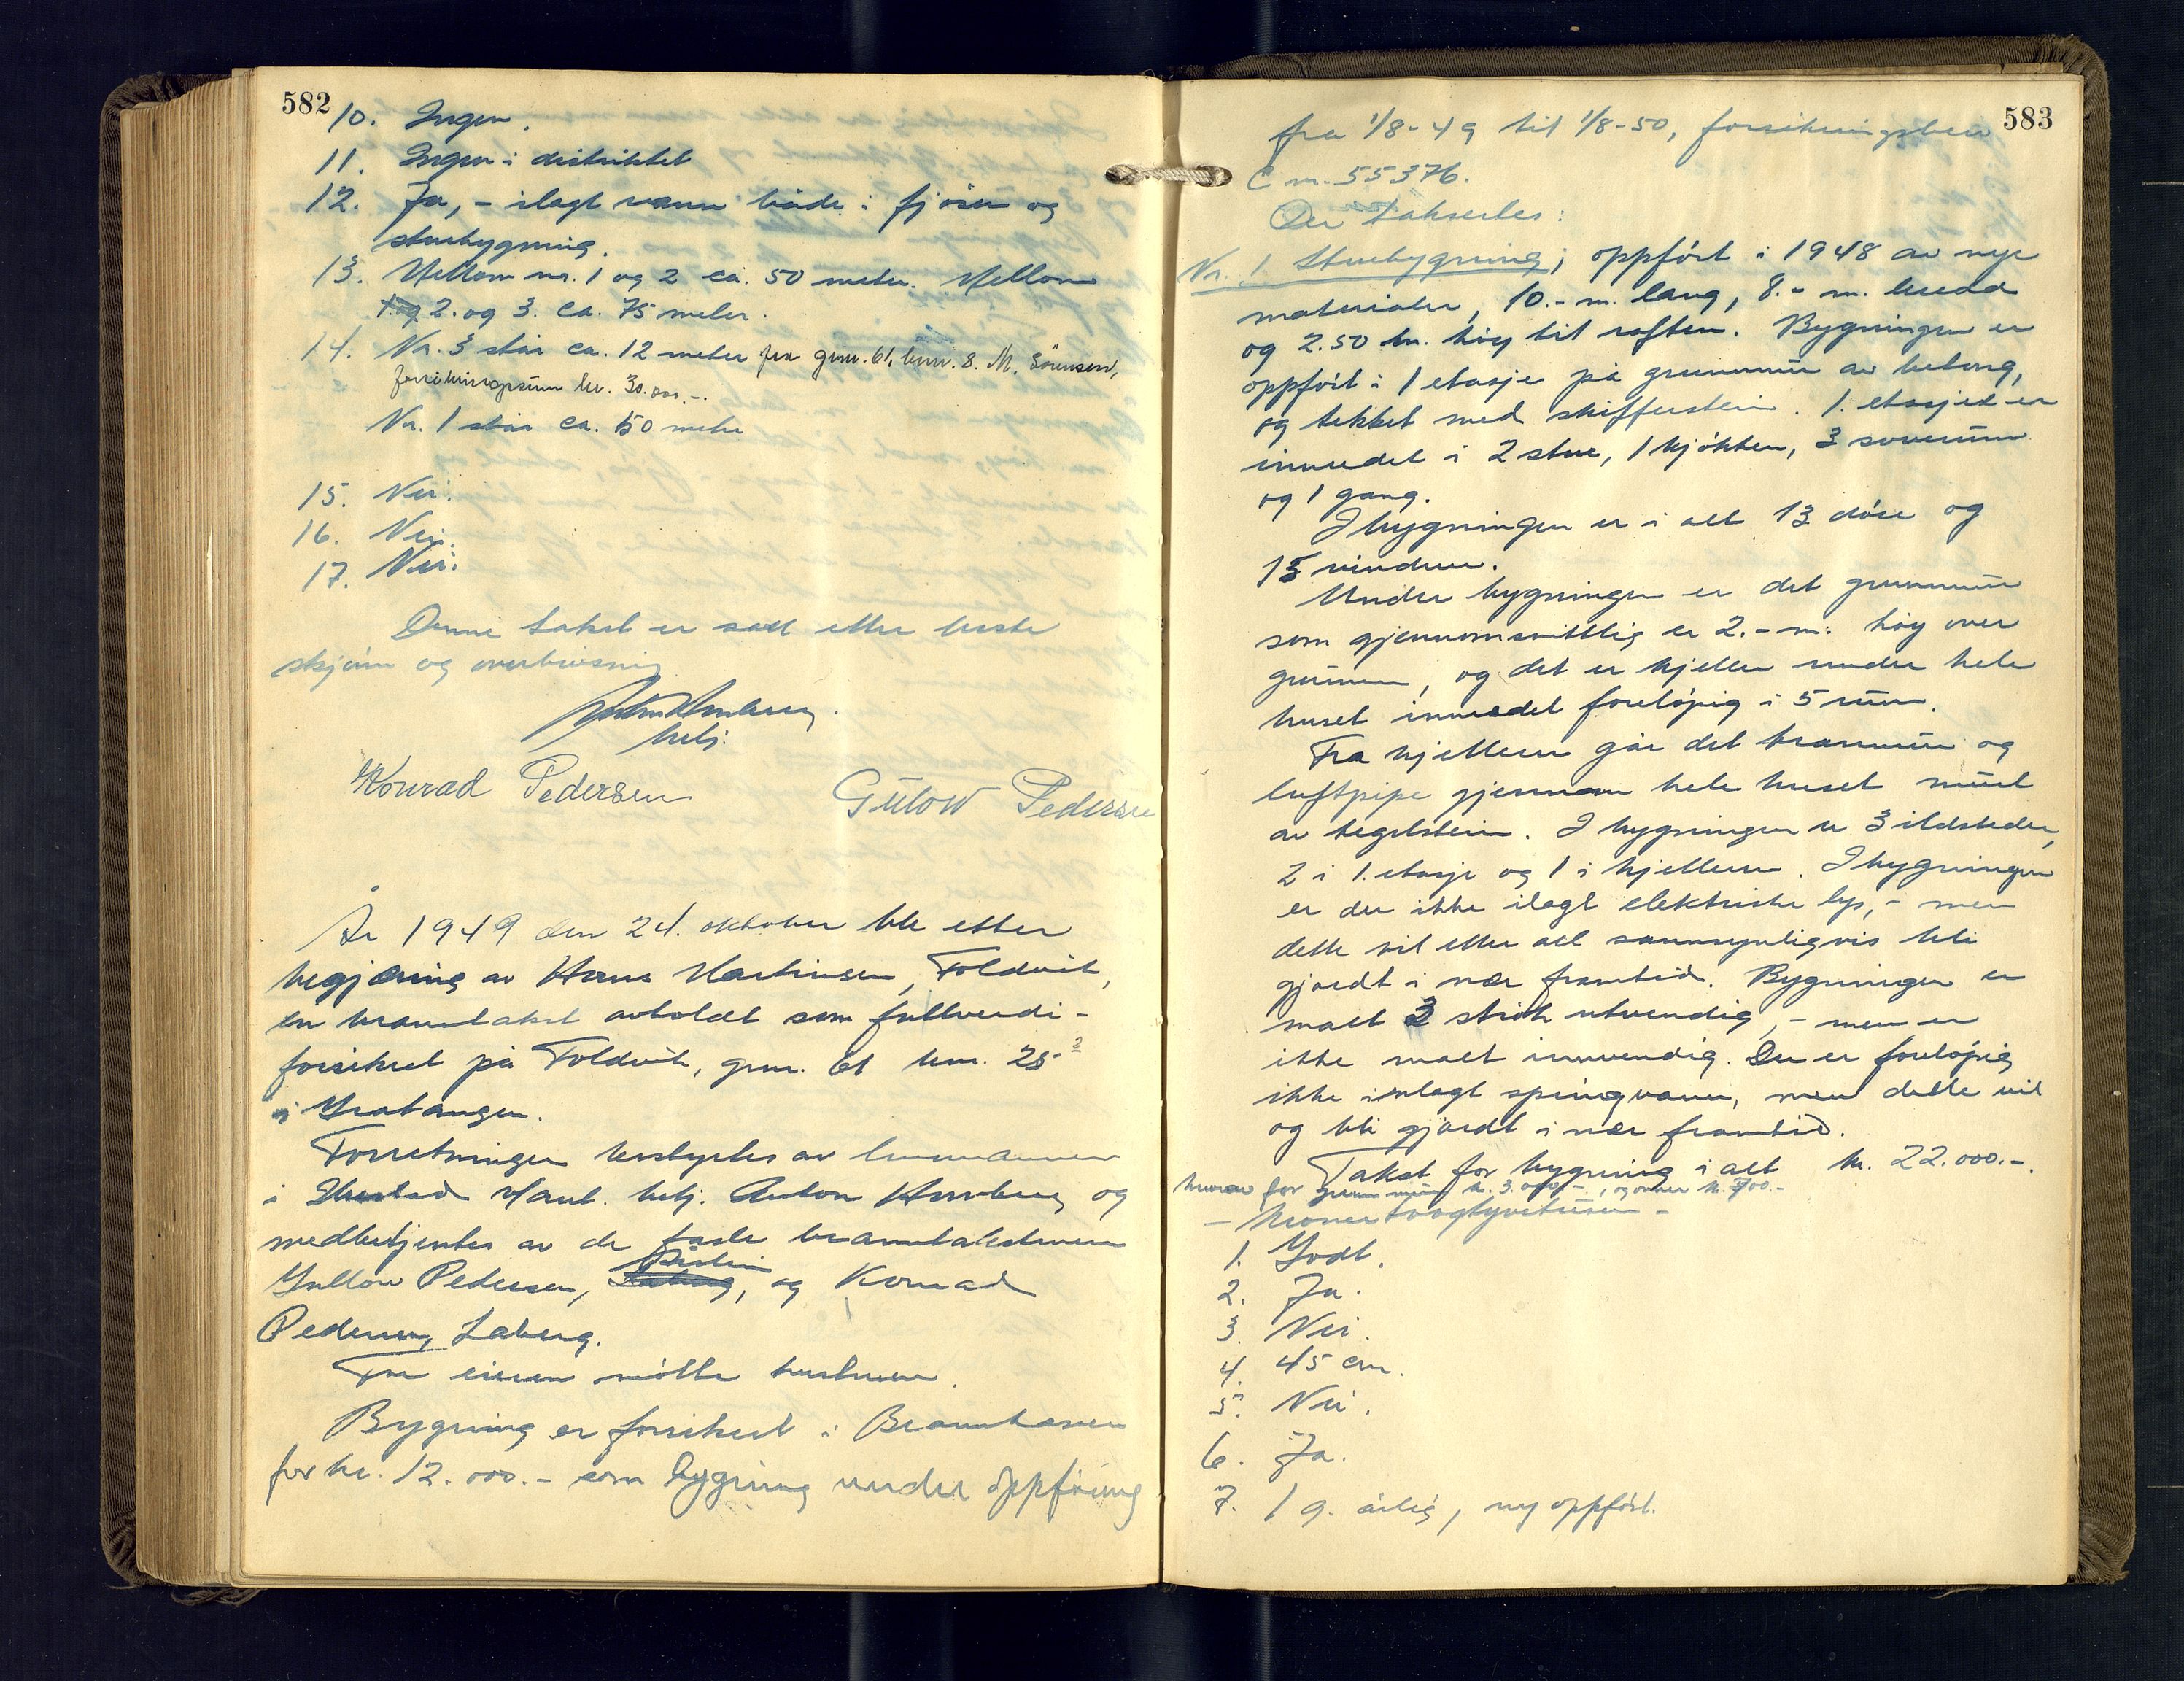 582
10. Ingen.
11. Ingen i distriktet
12. Ja, - ilagt vann både i fjøsen og
stuebygning.
13. Mellom nr. 1 og 2 ca. 50 meter. Mellom
1 og 2. og 3. ca. 75 meter.
14. Nr. 3 står ca. 12 meter fra gnr. 61, bnr. 8. M. Sörensen,
forsikringssum kr. 30.000.-.
Nr. 1 står ca. 50 meter
15. Nei.
16. Nei.
17. Nei.
Denne takst er satt etter beste
skjønn og overbevisning
betj.
Konrad Pedersen Gülow Pedersen
År 1949 den 24. oktober ble etter
begjæring av Hans Martinsen, Foldvik,
en branntakst avholdt som fullverdi-
forsikret på Foldvik, gnr. 61 bnr. 25
i Gratangen.
Forretningen bestyrtes av lensmannen
i Ibestad v/ant. betj. Anton Hamberg og
medbetjentes av de faste branntakstmenn
Gullow Pedersen, Løberg, og Konrad
Pedersen, Laberg.
For eieren møtte hustruen.
Bygning er forsikret i Brannkassen
for kr. 12.000.- som bygning under oppføring
583
fra 1/8-49 til 1/8-50, forsikringsbevis
C nr. 55376.
Der taksertes:
Nr. 1. Stuebygning; oppført i 1948 av nye
materialer, 10.- m. lang, 8.- m. bredd
og 2.50 m. høy til raften. Bygningen er
oppført i 1 etasje på grunnmur av betong,
og tekket med skifferstein. 1. etasjed er
innredet i 2 stue, 1 kjøkken, 3 soverum
og 1 gang.
I bygningen er i alt 13 døre og
15 vinduer.
Under bygningen er det grunnmur
som gjennomsnittlig er 2.- m. høy over
grunnen, og det er kjeller under hele
huset innredet foreløpig i 5 rum.
Fra kjelleren går det brannmur og
luftpipe gjennom hele huset murt
av teglstein. I bygningen er 3 ildsteder,
2 i 1. etasje og 1 i kjelleren. I bygningen
er der ikke ilagt elektriske lys, - men
dette vil etter all sannsynligvis bli
gjordt i nær framtid. Bygningen er
malt 2 strøk utvendig, - men er
ikke malt innvendig. Der er foreløpig
ikke innlagt springvann, men dette vil
og bli gjordt i nær framtid.
Takst for bygning i alt kr. 22.000.-.
hvorav for grunnmur kr. 3.000.-, og ovner kr. 700.-
- kroner toogtyvetusen -
1. Godt.
2. Ja.
3. Nei.
4. 45 cm.
5. Nei.
6. Ja.
7. 1 g. årlig, ny oppført.